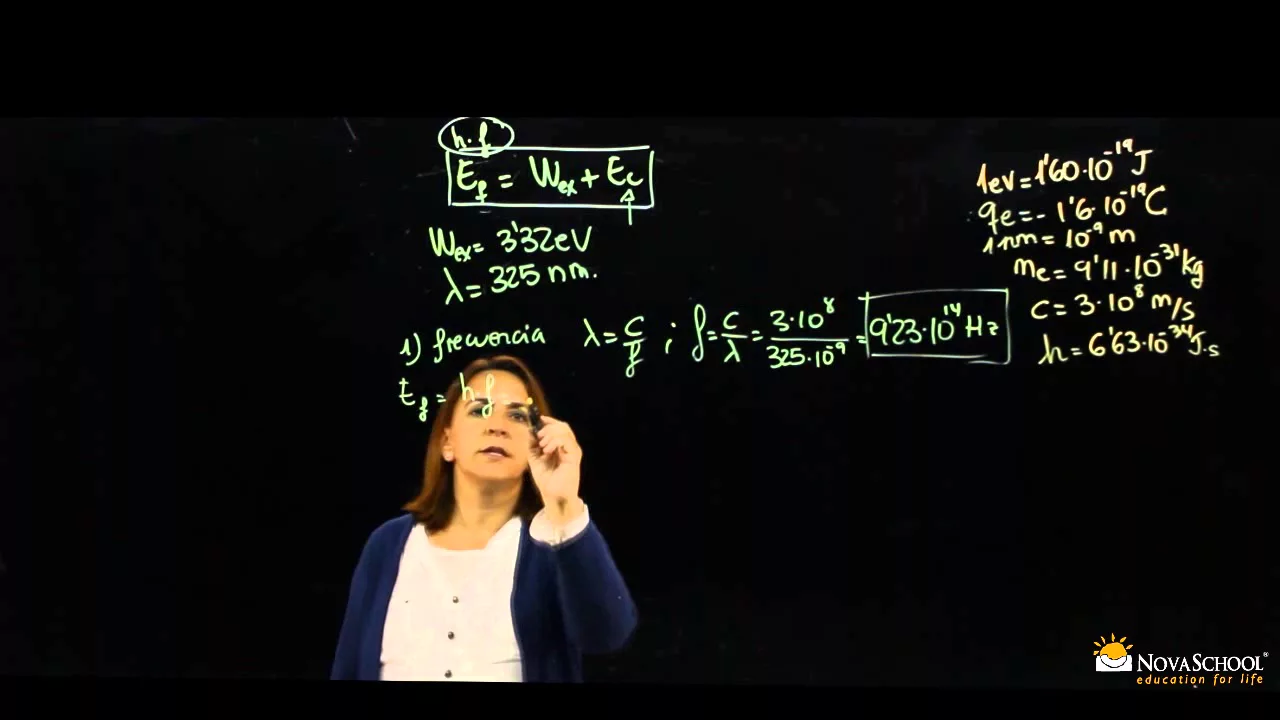 h·f
E_f = W_ex + E_c
W_ex = 3'32eV
λ = 325 nm.
1) frecuencia λ = c/f ; f = c/λ = 3·10⁸/325·10⁻⁹ = 9'23·10¹⁴ Hz
E_f = h·f =
1ev = 1'60·10⁻¹⁹ J
q_e = - 1'6·10⁻¹⁹ C
1 nm = 10⁻⁹ m
m_e = 9'11·10⁻³¹ kg
c = 3·10⁸ m/s
h = 6'63·10⁻³⁴ J·s
NOVASCHOOL®
education for life